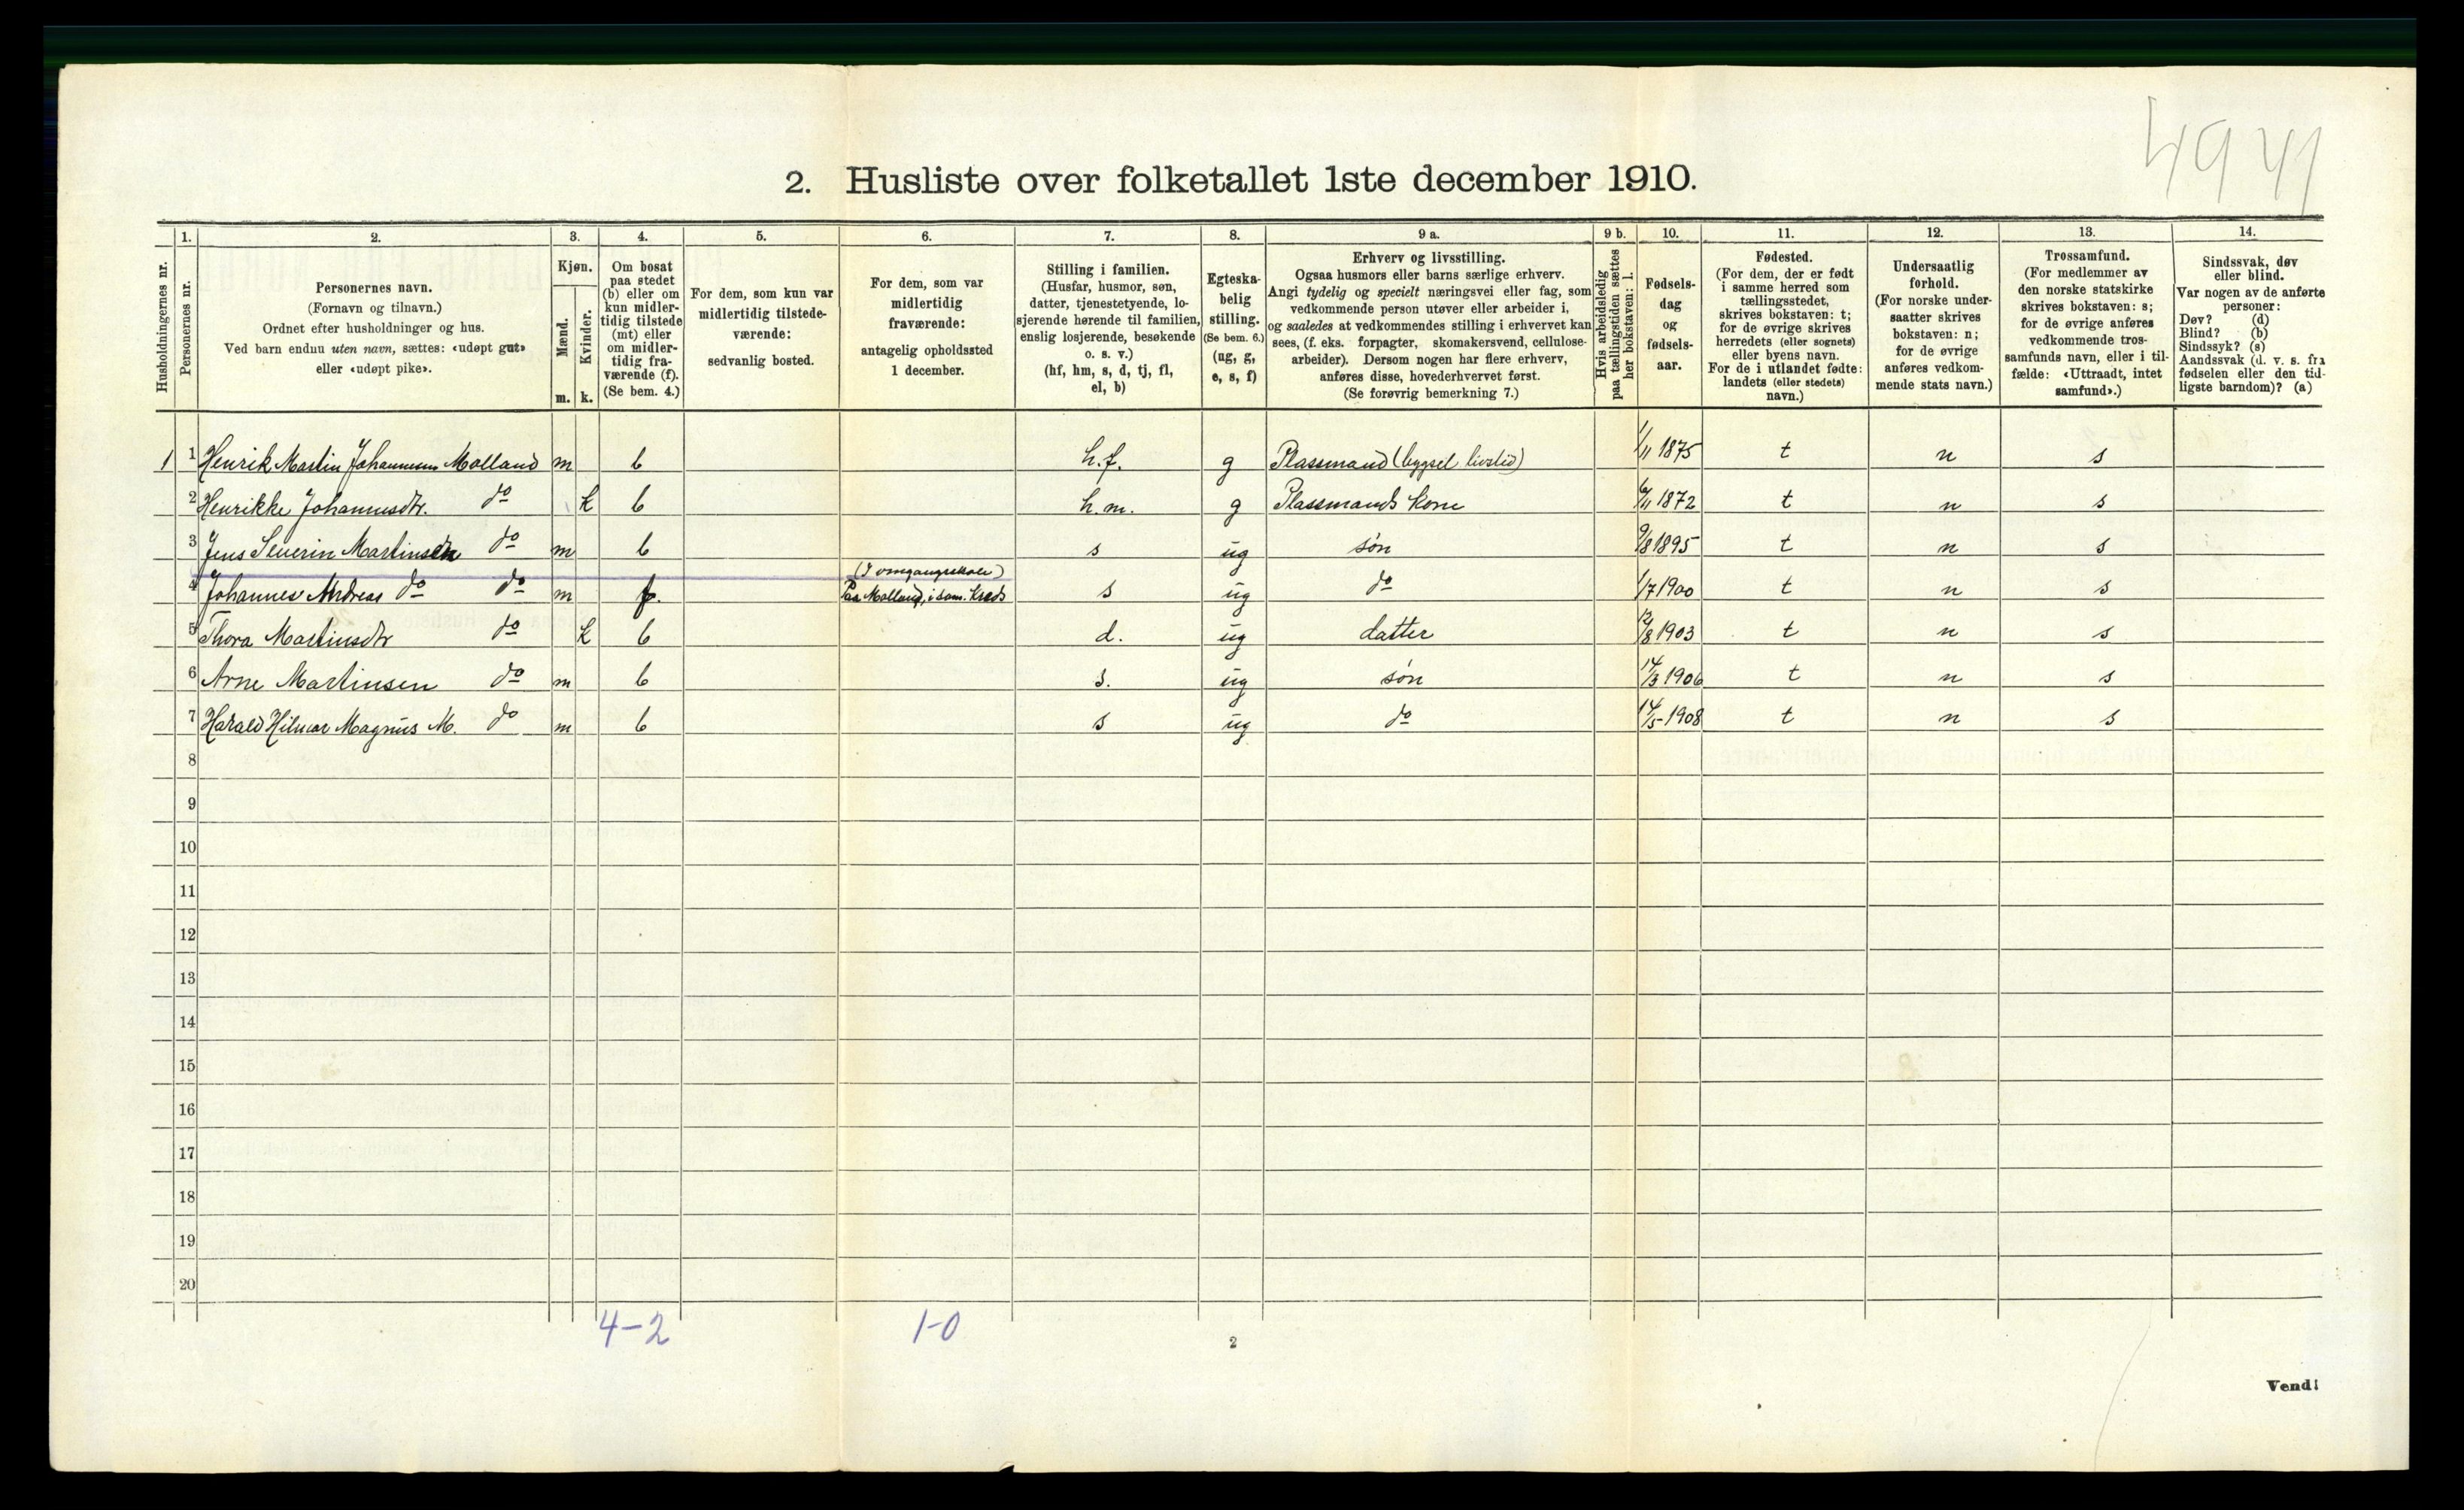 4941
2. Husliste over folketallet 1ste december 1910.
Husholdningernes nr.
1.
Personernes nr.
2.
Personernes navn.
(Fornavn og tilnavn.)
Ordnet efter husholdninger og hus.
Ved barn endnu uten navn, sættes: «udøpt gut»
eller «udøpt pike».
3.
Kjøn.
Mænd.
Kvinder.
m. k.
4.
Om bosat
paa stedet
(b) eller om
kun midler-
tidig tilstede
(mt) eller
om midler-
tidig fra-
værende (f).
(Se bem. 4.)
5.
For dem, som kun var
midlertidig tilstede-
værende:
sedvanlig bosted.
6.
For dem, som var
midlertidig
fraværende:
antagelig opholdssted
1 december.
7.
Stilling i familien.
(Husfar, husmor, søn,
datter, tjenestetyende, lo-
sjerende hørende til familien,
enslig losjerende, besøkende
o. s. v.)
(hf, hm, s, d, tj, fl,
el, b)
8.
Egteska-
belig
stilling.
(Se bem. 6.)
(ug, g,
e, s, f)
9 a.
Erhverv og livsstilling.
Ogsaa husmors eller barns særlige erhverv.
Angi tydelig og specielt næringsvei eller fag, som
vedkommende person utøver eller arbeider i,
og saaledes at vedkommendes stilling i erhvervet kan
sees, (f. eks. forpagter, skomakersvend, cellulose-
arbeider). Dersom nogen har flere erhverv,
anføres disse, hovederhvervet først.
(Se forøvrig bemerkning 7.)
9 b.
Hvis arbeidsledig
paa tællingstiden sættes
her bokstaven: l.
10.
Fødsels-
dag
og
fødsels-
aar.
11.
Fødested.
(For dem, der er født
i samme herred som
tællingsstedet,
skrives bokstaven: t;
for de øvrige skrives
herredets (eller sognets)
eller byens navn.
For de i utlandet fødte:
landets (eller stedets)
navn.)
12.
Undersaatlig
forhold.
(For norske under-
saatter skrives
bokstaven: n;
for de øvrige
anføres vedkom-
mende stats navn.)
13.
Trossamfund.
(For medlemmer av
den norske statskirke
skrives bokstaven: s;
for de øvrige anføres
vedkommende tros-
samfunds navn, eller i til-
fælde: «Uttraadt, intet
samfund».)
14.
Sindssvak, døv
eller blind.
Var nogen av de anførte
personer:
Døv? (d)
Blind? (b)
Sindssyk? (s)
Aandssvak (d. v. s. fra
fødselen eller den tid-
ligste barndom)? (a)
1 1 Henrik Martin Johannesen Molland m b h.f. g Plassmand (bygsel livstid) 1/11 1875 t n s
2 Henrikke Johannesdtr. do k b h.m. g Plassmands kone 6/11 1872 t n s
3 Jens Severin Martinsen do m b s ug søn 9/8 1895 t n s
(I omgangsskole)
4 Johannes Andreas do do m f. Paa Molland, i sam. kreds s ug do 1/7 1900 t n s
5 Thora Martinsdtr do k b d. ug datter 12/8 1903 t n s
6 Arne Martinsen do m b s. ug søn 14/3 1906 t n s
7 Harald Hilmar Magnus M. do m b s ug do 14/5 1908 t n s
8
9
10
11
12
13
14
15
16
17
18
19
20
4-2 1-0
2
Vend!